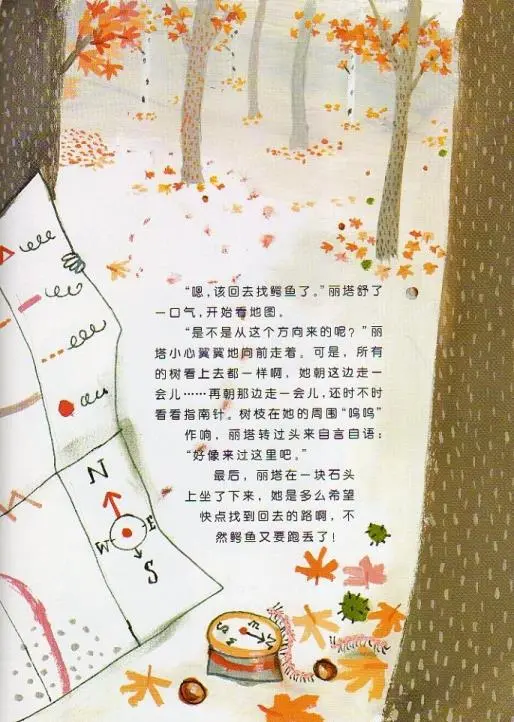 “嗯，该回去找鳄鱼了。”丽塔舒了
一口气，开始看地图。
“是不是从这个方向来的呢？”丽
塔小心翼翼地向前走着。可是，所有
的树看上去都一样啊，她朝这边走一
会儿……再朝那边走一会儿，还时不时
看看指南针。树枝在她的周围“呜呜”
作响，丽塔转过头来自言自语：
“好像来过这里吧。”
最后，丽塔在一块石头
上坐了下来，她是多么希望
快点找到回去的路啊，不
然鳄鱼又要跑丢了！
N
W E
S